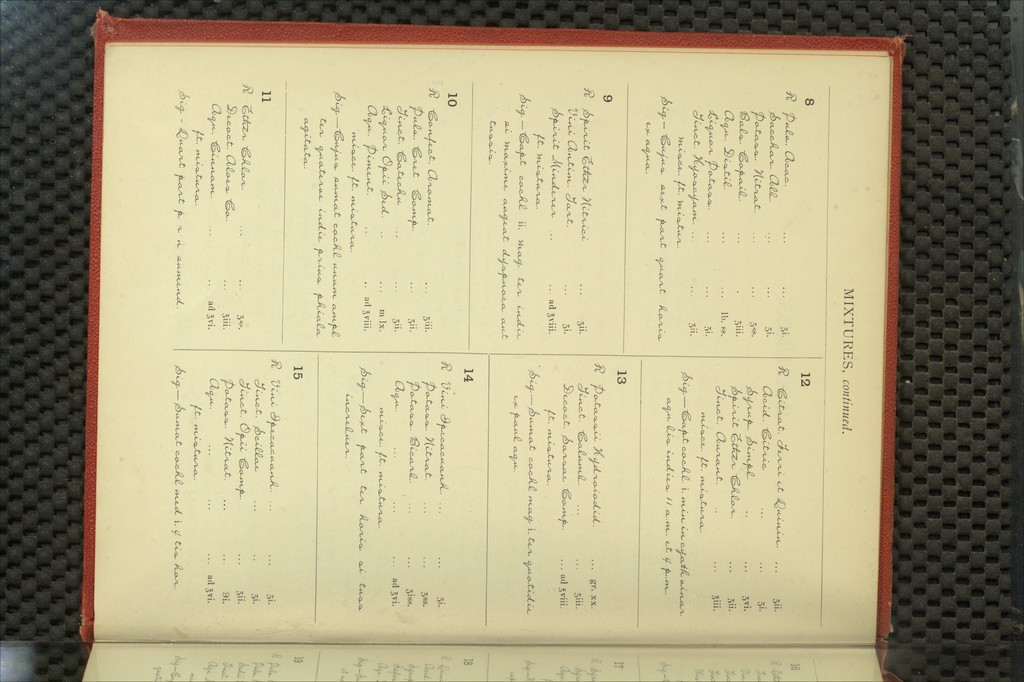 MIXTURES, continued.
8
R Pulv. Acac. ... ... ʒi.
Sacchar. Alb. ... ... ʒi.
Potass. Nitrat. ... ʒss.
Bals. Copaib. ... . ʒiii.
Aqu. Distil. ... ... lb. ss.
Liquor Potass. ... ... ʒi.
Tinct. Hyoscyam. .. ... ʒiii.
misce ft. mistur.
Sig—Cujus sext part quart horis
ex aqua.
9
R Spirit Ether Nitrici ... ʒii.
Vini Antim. Tart. ... ʒi.
Spirit Minderer ... ... ad ʒviii.
ft. mistura.
Sig—Capt cochl ii. mag ter indie
si maxime augeat dyspnœa aut
tussis.
10
R Confect. Aromat. ... ʒiii.
Pulv. Cret Comp. ... ʒii.
Tinct. Catechu ... ... ʒii.
Liquor Opii Sed. .. ... m lx.
Aqu. Piment. ... . ad ʒviii.
misce. ft. mistura.
Sig—Cujus sumat cochl unum ampl
ter quaterve indie prius phiala
agitata.
11
R Ether Chlor. ... ... ʒss.
Decoct. Aloes Co. ... ʒiii.
Aqu. Cinnam. ... ... ad ʒvi.
ft. mistura.
Sig - Quart part p r n sumend.
12
R Citrat Ferri et Quinin. ... ʒii.
Acid. Citric ... ... ʒi.
Syrup. Simpl. .. ... ʒvi.
Spirit Ether Chlor. ... ʒii.
Tinct. Aurant. .. ... ʒiii.
misce ft. mistura.
Sig—Capt cochl i. min in cyath vinar
aqu bis indies 11 a.m. et 4 p.m.
13
R Potassii Hydroiodid. ... gr. xx.
Tinct. Calumb. ... ... ʒiii.
Decoct. Sarsae Comp. ... ad ʒviii.
ft. mistura.
Sig—Sumat cochl mag i. ter quotidie
ex paul aqu.
14
R Vini Ipecacuanh. ... ... ʒi.
Potass. Nitrat. ... ... ʒss.
Potass Bicarb. . ... ʒiss.
Aqu. ... ... ... ad ʒvi.
misce. ft. mistura.
Sig—Sext part ter horis si tuss
increbuer.
15
R Vini Ipecacuanh. .. ... ʒi.
Tinct. Scillae ... ... ʒi.
Tinct. Opii Comp. ... ʒii.
Potass. Nitrat. ... ... ℈i.
Aqu. ... ... ... ad ʒvi.
ft. mistura.
Sig—Sumat cochl med i. 4 tis hor.
16
17
18
19